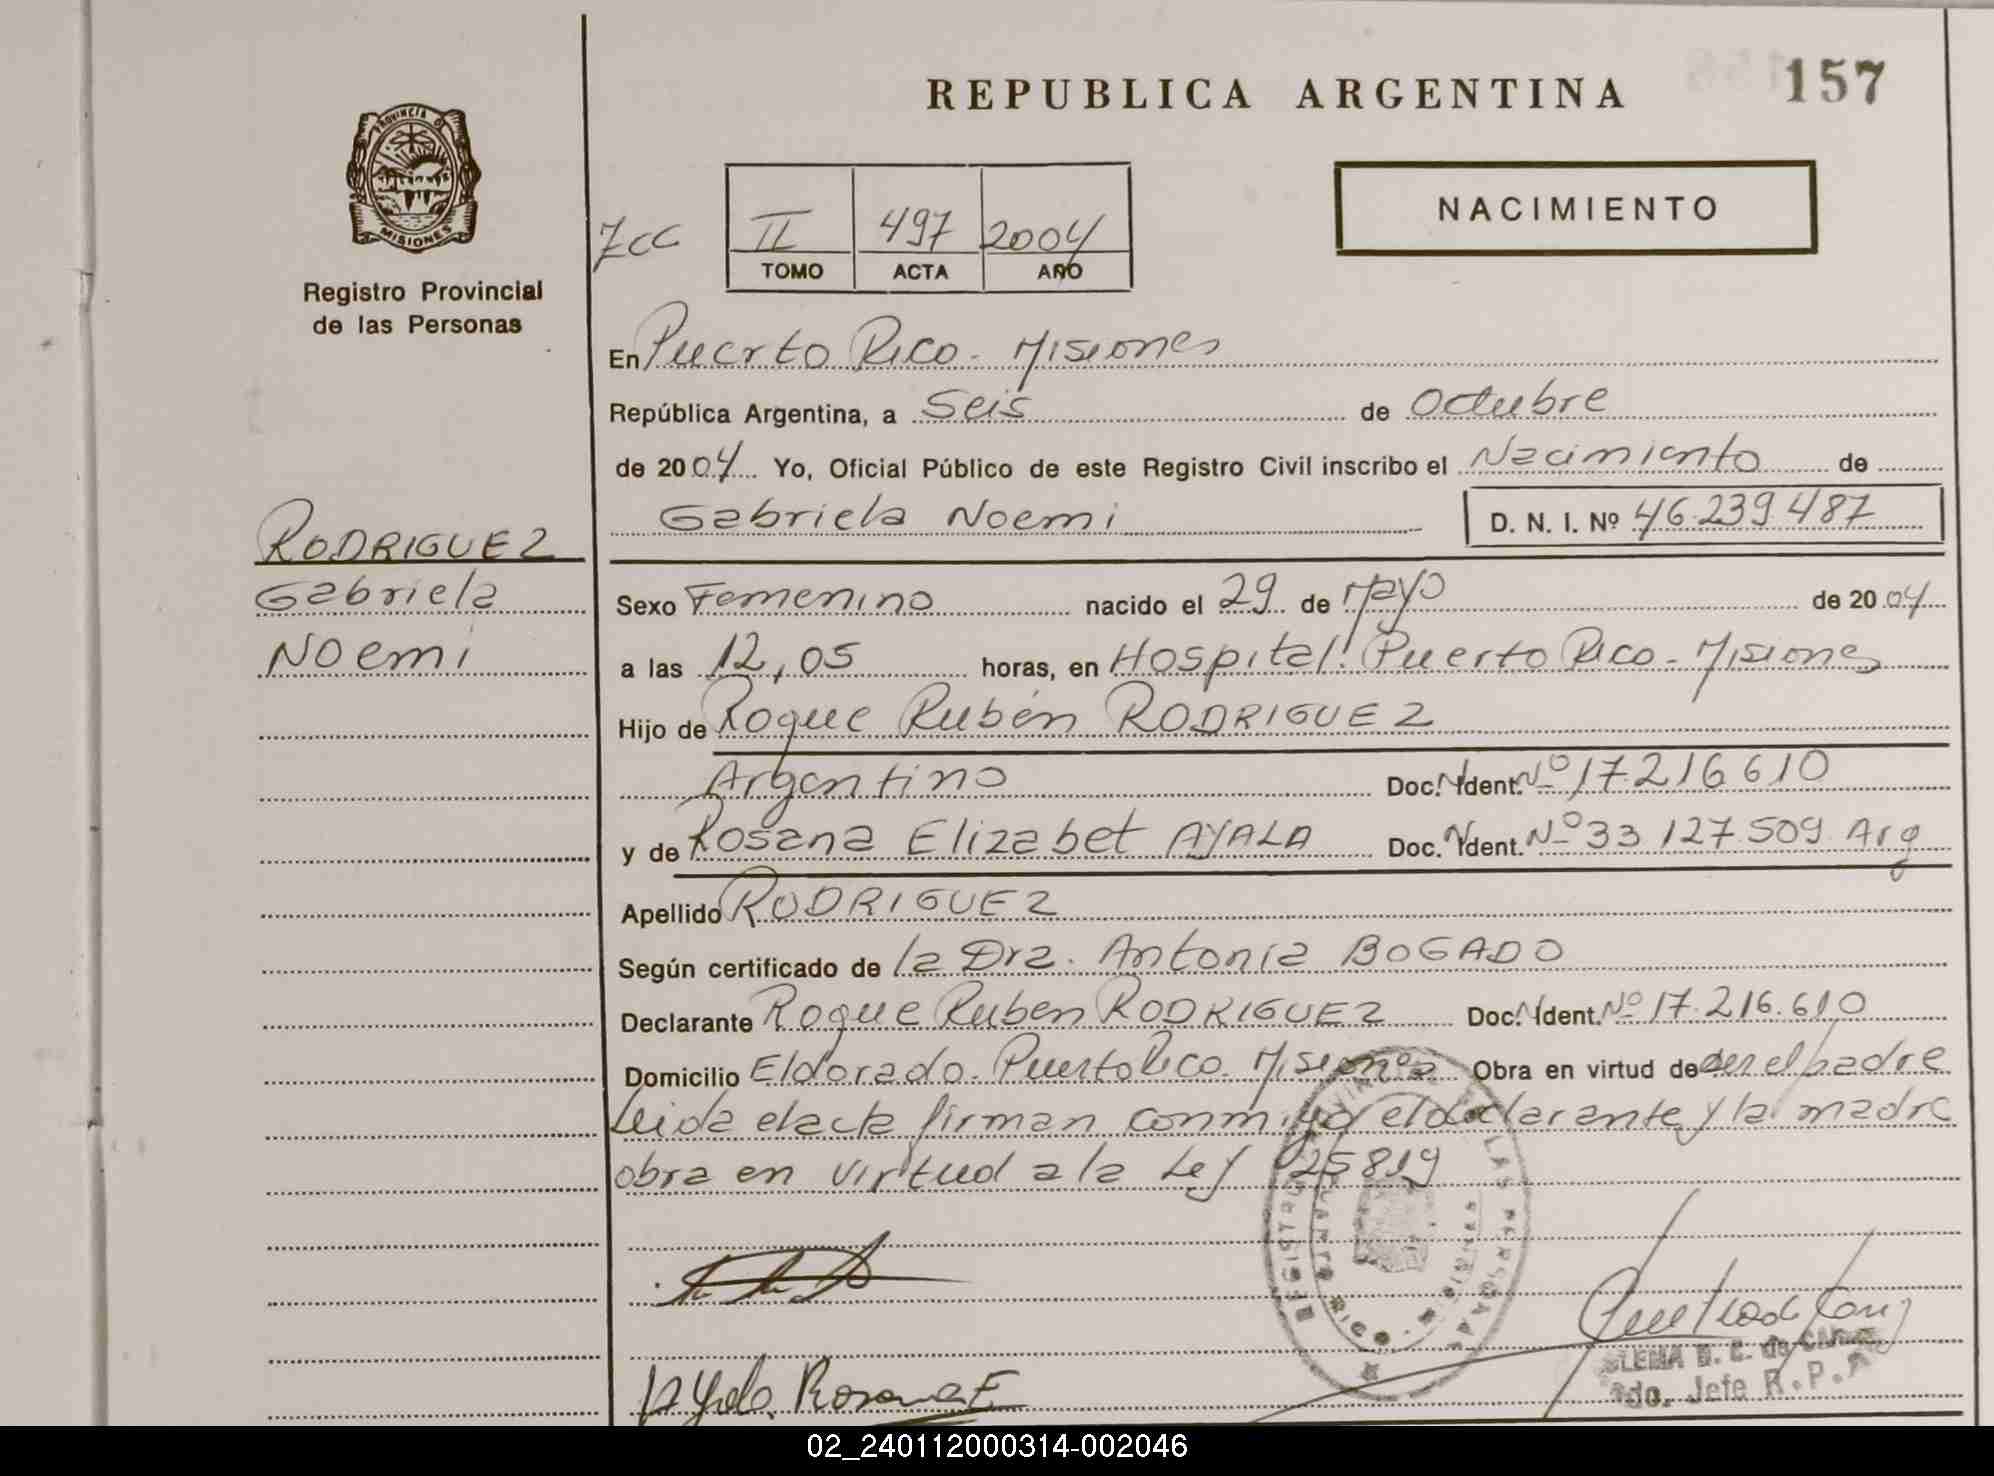 REPUBLICA ARGENTINA
157
PROVINCIA DE
MISIONES
Registro Provincial
de las Personas
7CC
II 497 2004
TOMO ACTA AÑO
NACIMIENTO
En Puerto Rico - Misiones
República Argentina, a Seis de Octubre
de 2004 Yo, Oficial Público de este Registro Civil inscribo el Nacimiento de
Gabriela Noemi D. N. I. Nº 46.239.487
RODRIGUEZ
Gabriela
Noemi
Sexo Femenino nacido el 29 de Mayo de 2004
a las 12,05 horas, en Hospital. Puerto Rico - Misiones
Hijo de Roque Rubén RODRIGUEZ
Argentino Doc. Ident. Nº 17.216.610
y de Rosana Elizabet AYALA Doc. Ident. Nº 33 127.509 Arg
Apellido RODRIGUEZ
Según certificado de la Dra. Antonia BOGADO
Declarante Roque Ruben RODRIGUEZ Doc. Ident. Nº 17.216.610
Domicilio Eldorado. Puerto Rico. Misiones Obra en virtud de ser el padre
Leida el acta firman conmigo el declarante y la madre
obra en virtud a la Ley 25819
REGISTRO PROVINCIAL DE LAS PERSONAS
PUERTO RICO - MISIONES
Ayala Rosana E
Jefe R.P.P.
02_240112000314-002046